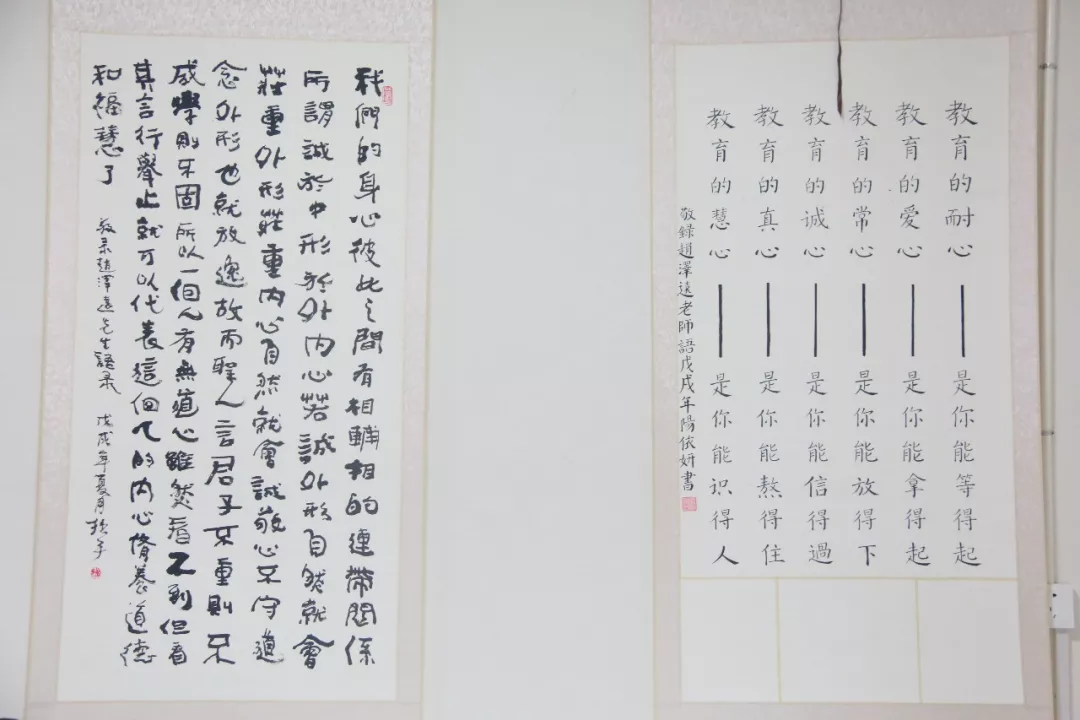 教育的耐心——是你能等得起
教育的爱心——是你能拿得起
教育的常心——是你能放得下
教育的诚心——是你能信得過
教育的真心——是你能熬得住
教育的慧心——是你能识得人
敬録趙澤遠老師語戊戌年陽依妍書
我們的身心彼此之間有相輔相的連帶関係
所謂誠於中形於外内心若誠外形自然就會
莊重外形莊重内心自然就會誠敬心不守道
念外形也就放逸故而聖人言君子不重則不
威學則不固所以一個人有無道心雖然看不到但看
其言行舉止就可以代表這個人的内心脩養道德
和福慧了
敬录趙澤遠先生語录 戊戌年夏月